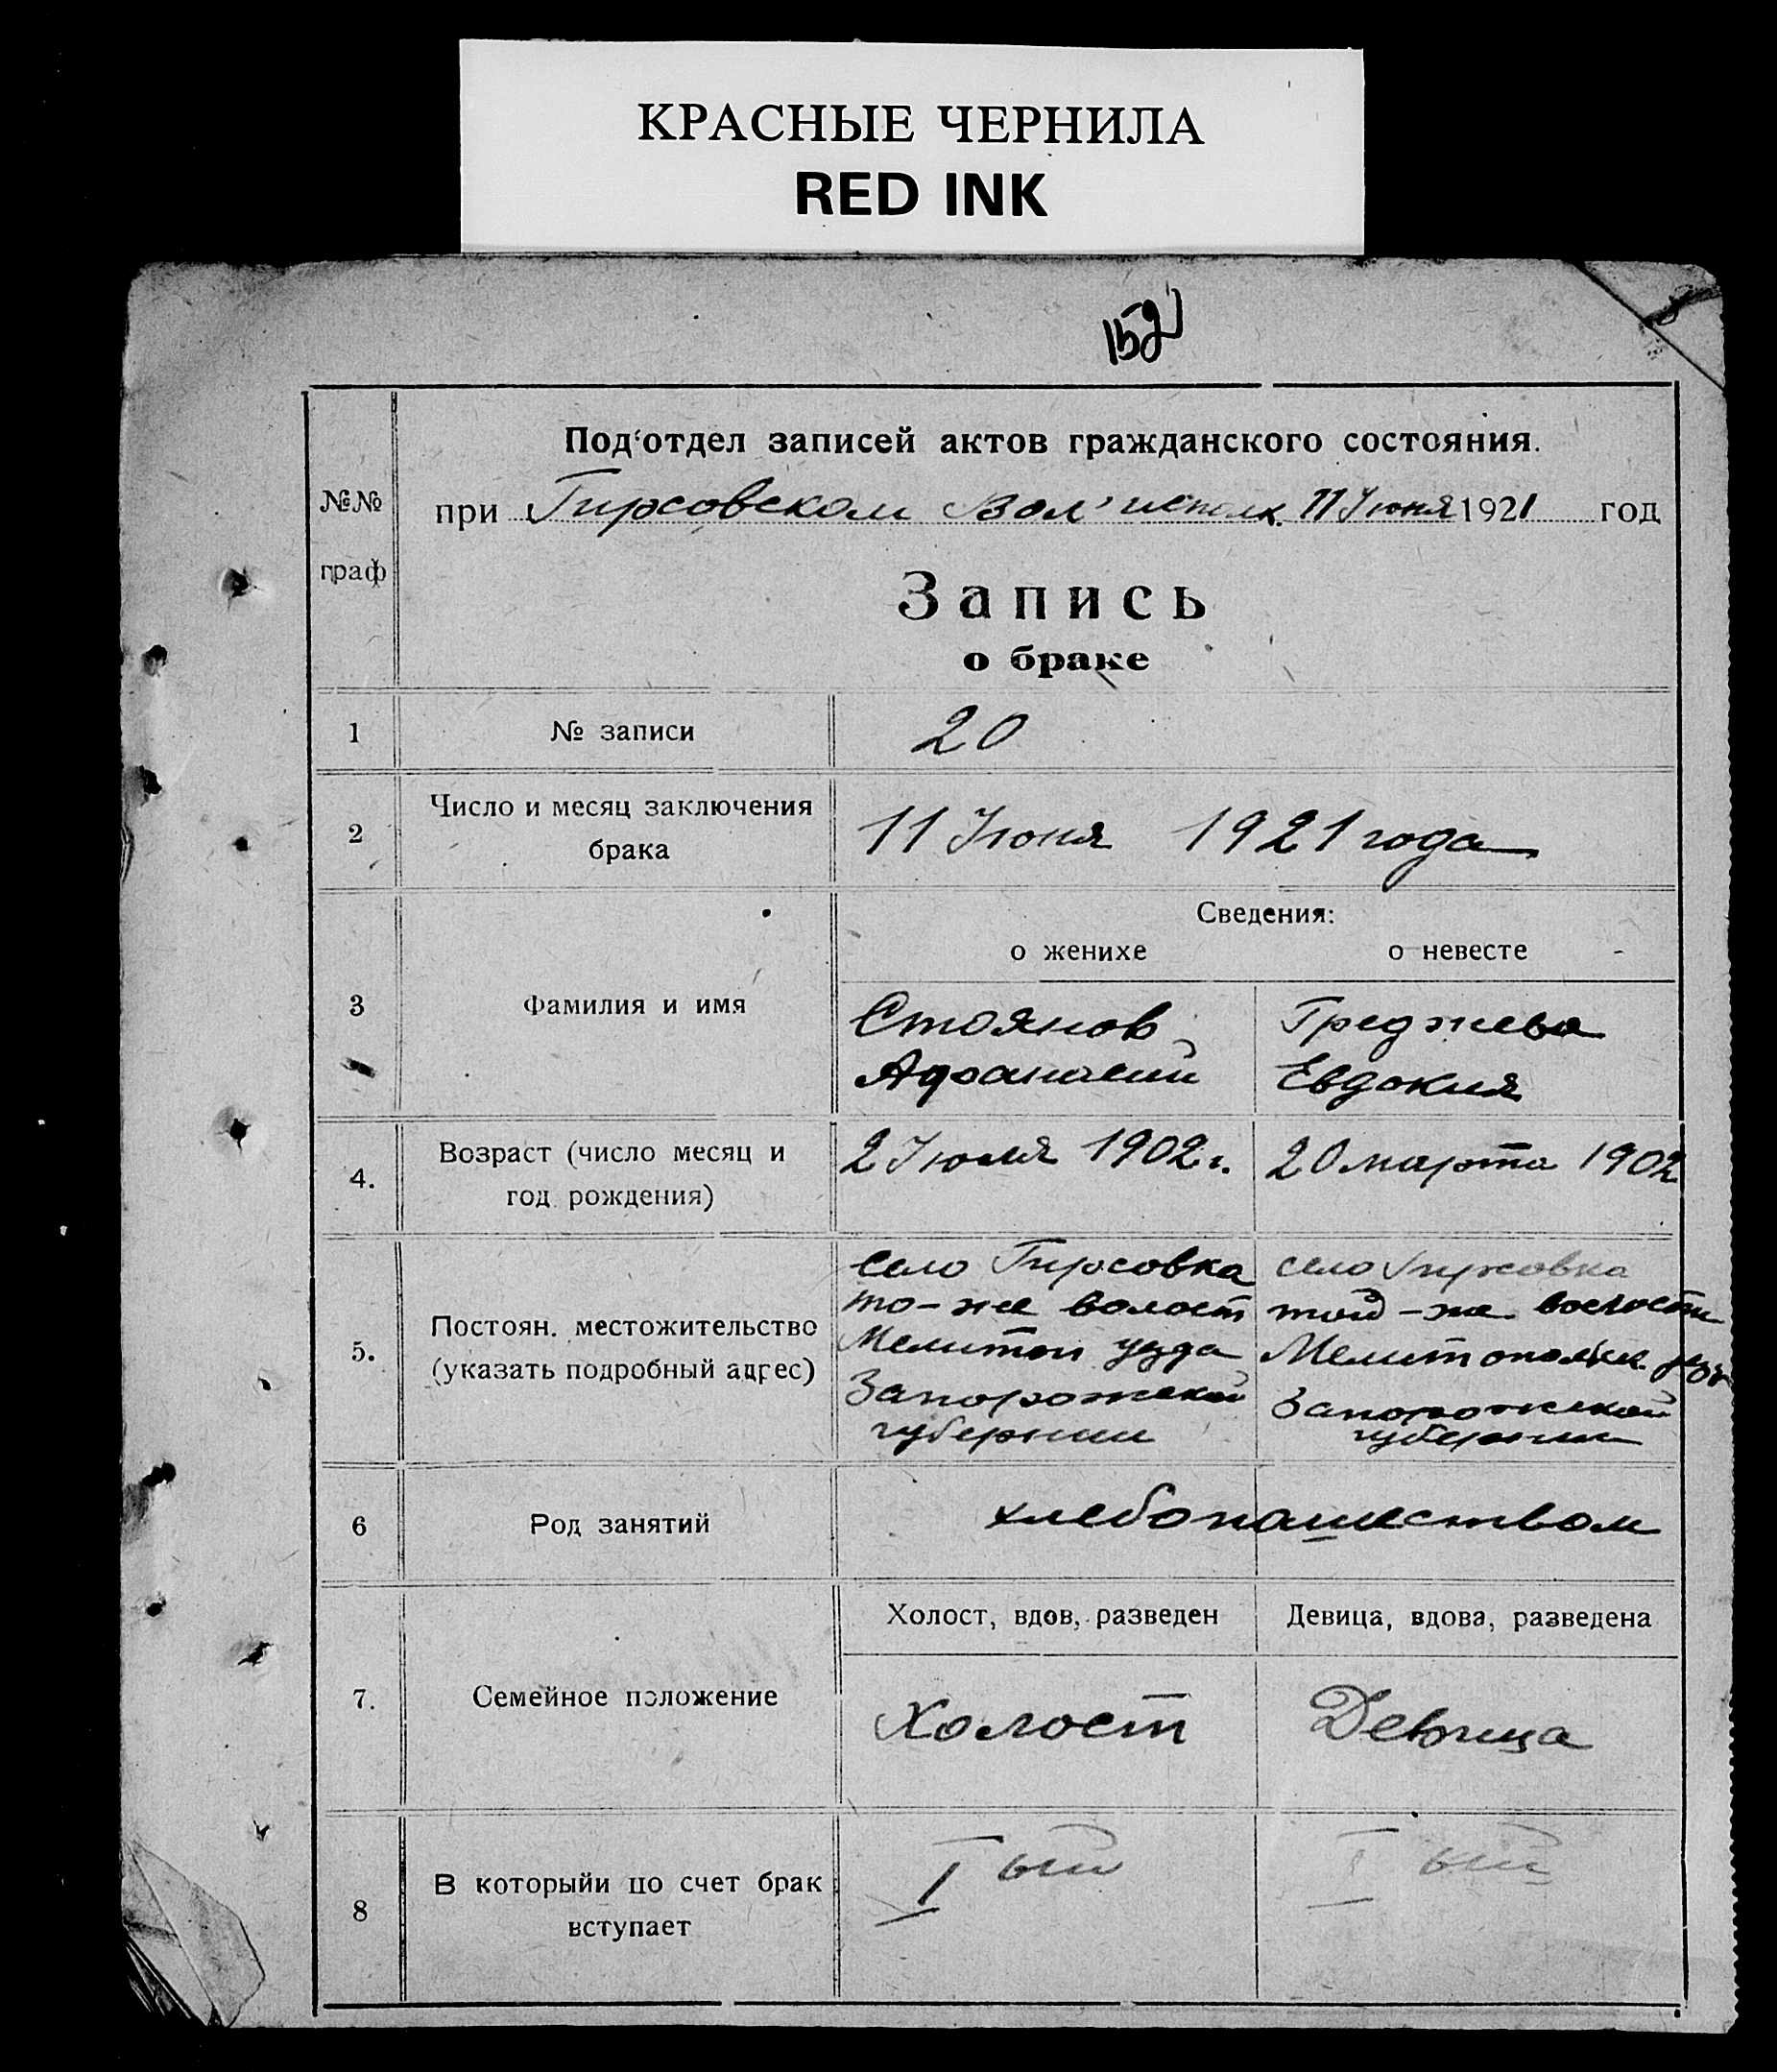 КРАСНЫЕ ЧЕРНИЛА
RED INK
152
№№
граф
Под'отдел записей актов гражданского состояния.
при Гирсовском Вол'исполк. 11 Июня 1921 год
Запись
о браке
1 № записи 20
2 Число и месяц заключения
брака
11 Июня 1921 года
Сведения:
о женихе о невесте
3 Фамилия и имя
Стоянов Греджева
Афанасий Евдокия
4. Возраст (число месяц и
год рождения)
2 Июля 1902 г. 20 марта 1902
5. Постоян. местожительство
(указать подробный адрес)
село Гирсовка село Гирсовка
то-же волост той-же волости
Мелитоп уезда Мелитопольск.
Запорожской Запорожской
губернии губернии
6 Род занятий хлебопашеством
Холост, вдов, разведен Девица, вдова, разведена
7. Семейное положение
Холост Девица
8 В которыйи по счет брак
вступает
I ый I ый